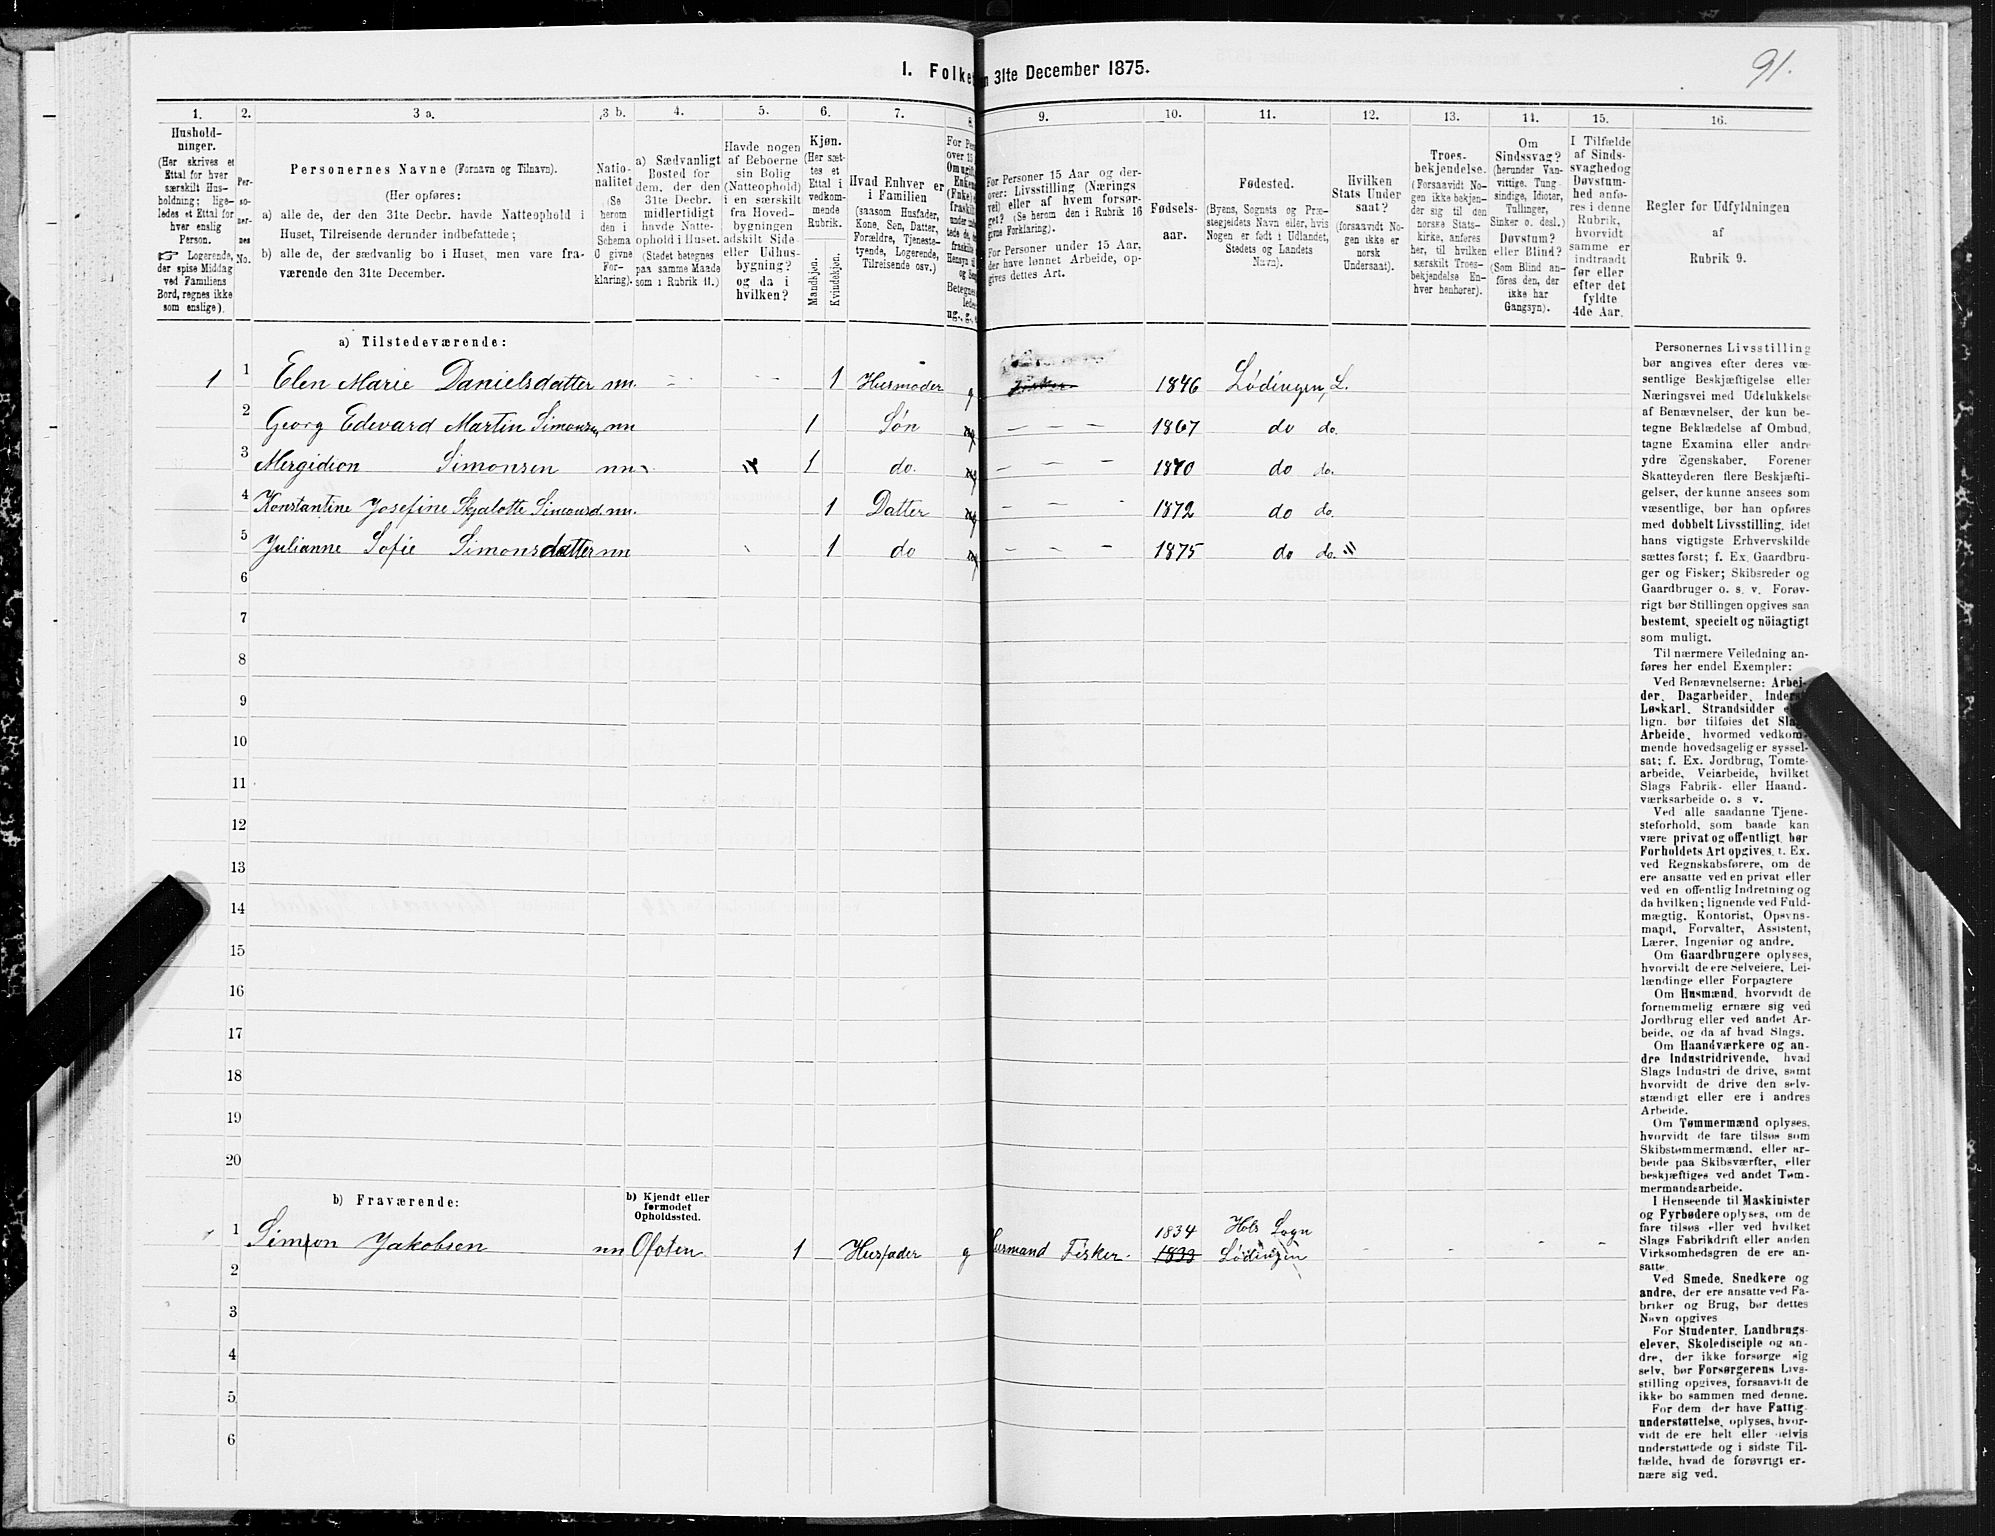 91.
1. Folke n 31te December 1875.
1. 2. 3 a. 3 b. 4. 5. 6. 7. 8. 9. 10. 11. 12. 13. 14. 15. 16.
Hushold-
ninger.
(Her skrives et
Ettal for hver
særskilt Hus-
holdning; lige-
ledes et Ettal for
hver enslig
Person.
☞ Logerende,
der spise Middag
ved Familiens
Bord, regnes ikke
som enslige).
Per-
so-
ner-
nes
No.
Personernes Navne (Fornavn og Tilnavn).
(Her opføres:
a) alle de, der den 31te Decbr. havde Natteophold i
Huset, Tilreisende derunder indbefattede;
b) alle de, der sædvanlig bo i Huset, men vare fra-
værende den 31te December.
Natio-
nalitet
(Se
herom
den i
Schema
0 givne
For-
klaring).
a) Sædvanligt
Bosted for
dem, der den
31te Decbr.
midlertidigt
havde Natte-
ophold i Huset.
(Stedet betegnes
paa samme Maade
som i Rubrik 11.)
Havde nogen
af Beboerne
sin Bolig
(Natteophold)
i en særskilt
fra Hoved-
bygningen
adskilt Side-
eller Udhus-
bygning?
og da i
hvilken?
Kjøn.
(Her sæt-
tes et
Ettal i
vedkom-
mende
Rubrik.
Mandkjøn.
Kvindekjøn.
Hvad Enhver er
i Familien
(saasom Husfader,
Kone, Søn, Datter,
Forældre, Tjeneste-
tyende, Logerende,
Tilreisende osv.)
For Per
over 15
Om ugift
Enken
(Fnke)
fraskilt
Hensyn til
Betegnes
ug., g., e
For Personer 15 Aar og der-
over: Livsstilling (Nærings
vei) eller af hvem forsør-
get? (Se herom den i Rubrik 16
givne Forklaring).
For Personer under 15 Aar,
der have lønnet Arbeide, op-
gives dettes Art.
Fødsels-
aar.
Fødested.
(Byens, Sognets og Præ-
stegjeldets Navn eller, hvis
Nogen er født i Udlandet,
Stedets og Landets
Navn).
Hvilken
Stats Under
saat?
(forsaavidt No-
gen ikke er
norsk
Undersaat).
Troes-
bekjendelse.
(Forsaavidt No-
gen ikke bekjen-
der sig til den
norske Stats-
kirke, anføres
her, til hvilken
særskilt Troes-
bekjendelse En-
hver henhører).
Om
Sindssvag?
(herunder Van-
vittige, Tung-
sindige, Idioter,
Tullinger,
Sinker o. desl.)
Døvstum?
eller Blind?
(Som Blind an-
føres den, der
ikke har
Gangsyn).
I Tilfælde
af Sinds-
svaghedog
Døvstum-
hed anfø-
res i denne
Rubrik,
hvorvidt
samme er
indtraadt
før eller
efter det
fyldte
4de Aar.
Regler for Udfyldningen
af
Rubrik 9.
a) Tilstedeværende:
1 1 Elen Marie Danielsdatter nn. 1 Husmoder g Fisker 1846 Lødingen, L.
2 Georg Edevard Martin Simonsen nn 1 Søn ug - - - 1867 do do.
3 Mergidion Simonsen nn 1 do. ug - - - 1870 do do.
4 Konstantine Josefine Skjalotte Simonsd. nn. 1 Datter ug - - - 1872 do do.
5 Julianne Sofie Simonsdatter nn 1 do ug - - - 1875 do do.
6
7
8
9
10
11
12
13
14
15
16
17
18
19
20
b) Fraværende:
b) Kjendt eller
formodet
Opholdssted.
1834 Hols Sogn
1 1 Simon Jakobsen nn Ofoten 1 Husfader g Husmand Fisker. 1833 Lødingen - - - -
2
3
4
5
6
Personernes Livsstilling
bør angives efter deres væ-
sentlige Beskjæftigelse eller
Næringsvei med Udelukkelse
af Benævnelser, der kun be-
tegne Beklædelse af Ombud,
tagne Examina eller andre
ydre Egenskaber. Forener
Skatteyderen flere Beskjæfti-
gelser, der kunne ansees som
væsentlige, bør han opføres
med dobbelt Livsstilling, idet
hans vigtigste Erhvervskilde
sættes først; f. Ex. Gaardbru-
ger og Fisker; Skibsreder og
Gaardbruger o. s. v. Forøv-
rigt bør Stillingen opgives saa
bestemt, specielt og nöiagtigt
som muligt.
Til nærmere Veiledning an-
føres her endel Exempler:
Ved Benævnelserne: Arbei-
der, Dagarbeider, Inderst
Løskarl, Strandsidder
lign. bør tilføies det Slags
Arbeide, hvormed vedkom-
mende hovedsagelig er syssel-
sat; f. Ex. Jordbrug, Tomte-
arbeide, Veiarbeide, hvilket
Slags Fabrik- eller Haand-
værksarbeide o. s. v.
Ved alle saadanne Tjene-
steforhold, som baade kan
være privat og offentligt, bør
Forholdets Art opgives, t. Ex.
ved Regnskabsførere, om de
ere ansatte ved en privat eller
ved en offentlig Indretning og
da hvilken; lignende ved Fuld-
mægtig, Kontorist, Opsyns-
mand, Forvalter, Assistent,
Lærer, Ingeniør og andre.
Om Gaardbrugere oplyses,
hvorvidt de ere Selveiere, Lei-
lændinge eller Forpagtere
Om Husmænd, hvorvidt de
fornemmelig ernære sig ved
Jordbrug eller ved andet Ar-
beide, og da af hvad Slags.
Om Haandværkere og an-
dre Industridrivende, hvad
Slags Industri de drive, samt
hvorvidt de drive den selv-
stændigt eller ere i andres
Arbeide.
Om Tømmermænd oplyses,
hvorvidt de fare tilsøs som
Skibstømmermænd, eller ar-
beide paa Skibsværfter, eller
beskjæftiges ved andet Tøm-
mermandsarbeide.
I Henseende til Maskinister
og Fyrbødere oplyses, om de
fare tilsøs eller ved hvilket
Slags Fabrikdrift eller anden
Virksomhedsgren de ere an-
satte.
Ved Smede, Snedkere og
andre, der ere ansatte ved Fa-
briker og Brug, bør dettes
Navn opgives
For Studenter, Landbrugs-
elever, Skoledisciple og an-
dre, der ikke forsørge sig
selv, bør Forsørgerens Livs-
stilling opgives, forsaavidt de
ikke bo sammen med denne.
For dem der have Fattig-
understøttelse, oplyses, hvor-
vidt de ere helt eller delvis
understøttede og i sidste Til-
fælde, hvad de forøvrigt er-
nære sig ved.